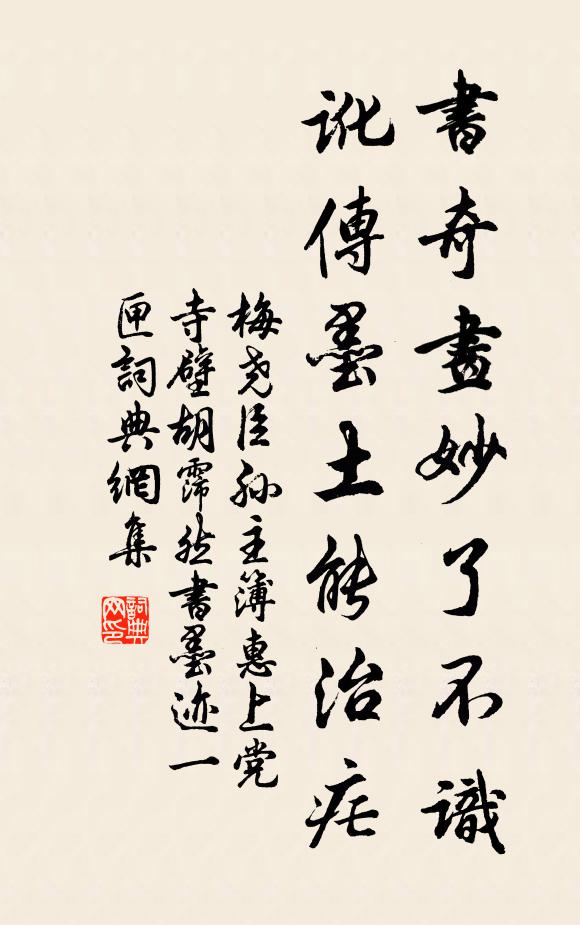 書奇畫妙了不識
訛傳墨土能治疟
梅尧臣孙主簿惠上党
寺壁胡霈然書墨迹一
匣詞典網集
詞典网印